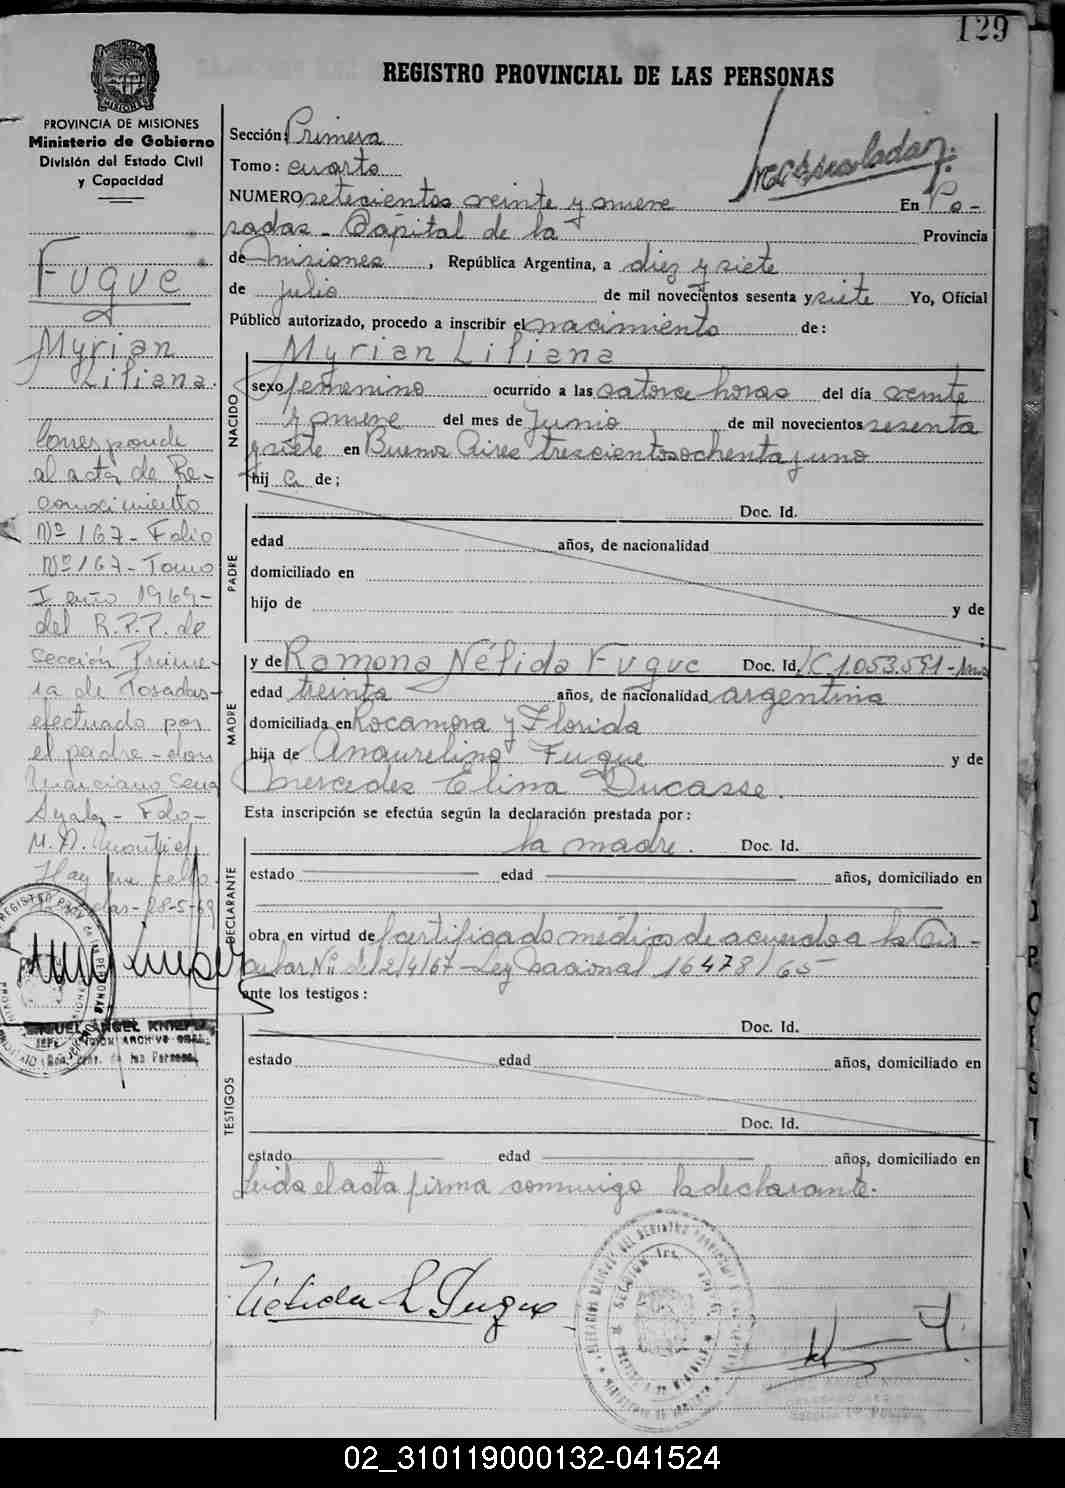 129
REGISTRO PROVINCIAL DE LAS PERSONAS
PROVINCIA DE MISIONES
Ministerio de Gobierno
División del Estado Civil
y Capacidad
Fuque
Myrian
Liliana.
Corresponde
al acta de Re-
conocimiento
Nº 167 - Folio
Nº 167 - Tomo
I año 1969 -
del R.P.P. de
Sección Prime-
ra de Posadas -
efectuado por
el padre - don
Marciano
Ayala - Fdo -
M. A. Montiel
Hay un sello.
28-5-69
MIGUEL ANGEL
JEFE ARCHIVO GRAL.
de las Personas
Sección: Primera
Tomo: cuarto
NUMERO setecientos veinte y nueve En Po-
sadas - Capital de la Provincia
de Misiones, República Argentina, a diez y siete
de julio de mil novecientos sesenta y siete Yo, Oficial
Público autorizado, procedo a inscribir el nacimiento de:
NACIDO
Myrian Liliana
sexo femenino ocurrido a las catorce horas del día veinte
y nueve del mes de Junio de mil novecientos sesenta
y siete en Buenos Aires trescientos ochenta y uno
hij a de;
PADRE
Doc. Id.
edad años, de nacionalidad
domiciliado en
hijo de y de
;
MADRE
y de Ramona Nélida Fuque Doc. Id. LC 1.053.591 -
edad treinta años, de nacionalidad argentina
domiciliada en Rocamora y Florida
hija de Anaurelino Fuque y de
Mercedes Elina Ducasse.
Esta inscripción se efectúa según la declaración prestada por:
DECLARANTE
la madre. Doc. Id.
estado edad años, domiciliado en
obra en virtud de certificado médico de acuerdo a la Cir-
cular Nº 11 del 2/4/67 - Ley Nacional 16478/65
ante los testigos:
TESTIGOS
Doc. Id.
estado edad años, domiciliado en
Doc. Id.
estado edad años, domiciliado en
Leída el acta firma conmigo la declarante.
Nélida R Fuque
02_310119000132-041524